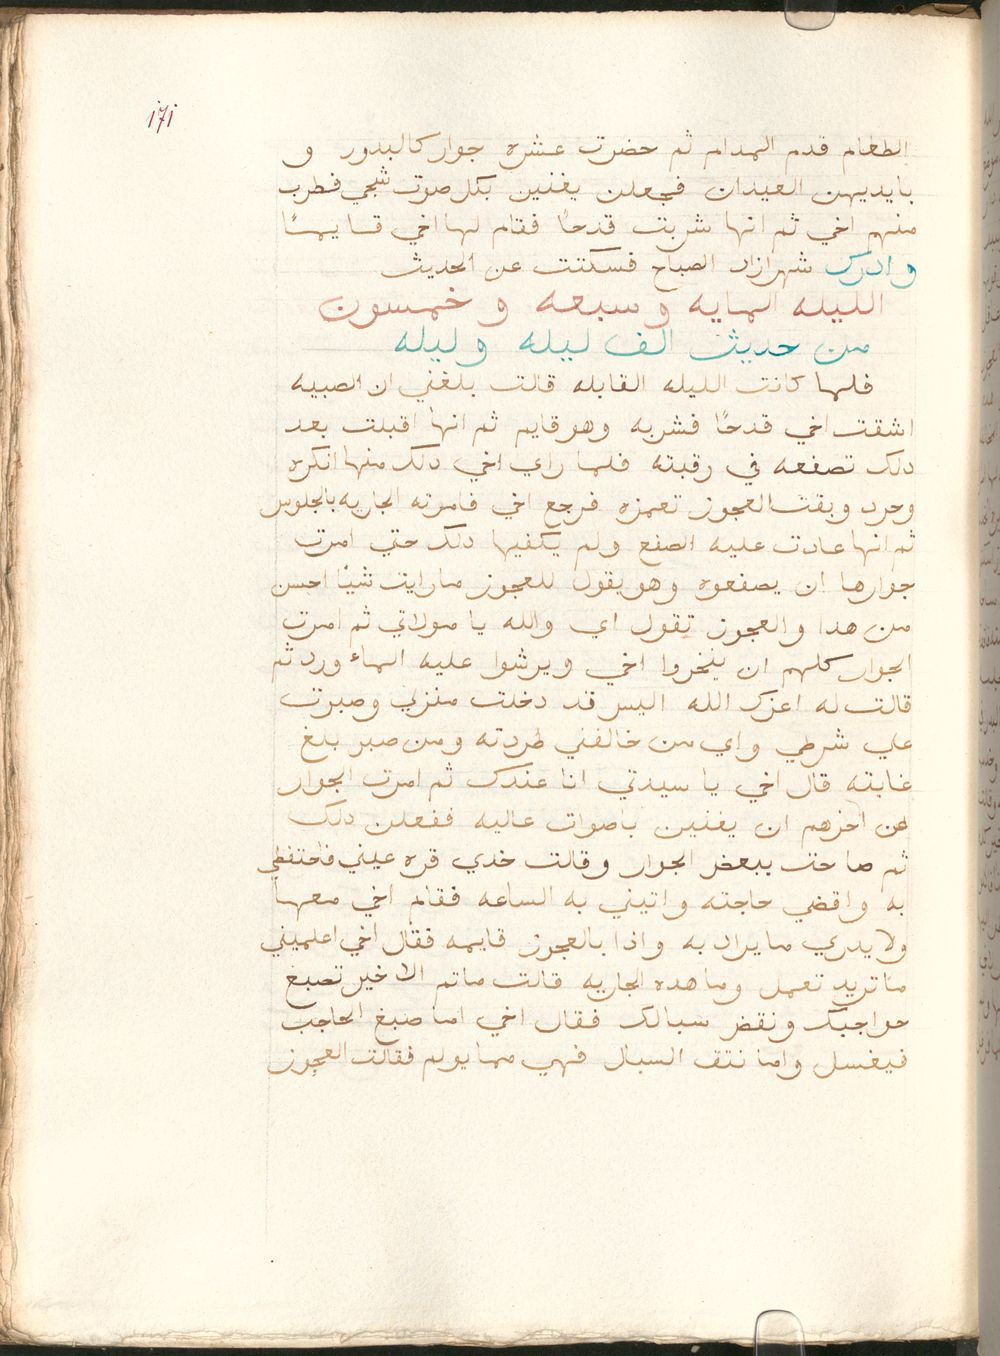 171
الطعام قدم المدام ثم حضرت عشره جوار كالبدور و
بايديهن العيدان فجعلن يغنين بكل صوت شجي فطرب
منهم اخي ثم انها شربت قدحًا فقام لها اخي قايمًا
وادرك شهرازاد الصباح فسكتت عن الحديث
الليله المايه وسبعه وخمسون
من حديث الف ليله وليله
فلما كانت الليله القابله قالت بلغني ان الصبيه
اشقت اخي قدحًا فشربه وهو قايم ثم انها اقبلت بعد
دلك تصفعه في رقبته فلما راي اخي دلك منها انكره
وحرد وبقت العجوز تغمزه فرجع اخي فامرته الجاريه بالجلوس
ثم انها عادت عليه الصفع ولم يكفيها دلك حتي امرت
جوارها ان يصفعوه وهو يقول للعجوز ما رايت شيًا احسن
من هدا والعجوز تقول اي والله يا مولاتي ثم امرت
الجوار كلهم ان يبخروا اخي ويرشوا عليه الماء ورد ثم
قالت له اعزك الله اليس قد دخلت منزلي وصبرت
علي شرطي واي من خالفني طردته ومن صبر بلغ
غايته قال اخي يا سيدتي انا عندك ثم امرت الجوار
عن اخرهم ان يغنين باصوات عاليه ففعلن دلك
ثم صاحت ببعض الجوار وقالت خدي قره عيني فاحتفظي
به واقضي حاجته واتيني به الساعه فقام اخي معها
ولا يدري ما يراد به واذا بالعجوز قايمه فقال اخي اعلميني
ما تريد تعمل وما هده الجاريه قالت ماتم الا خير تصبغ
حواجبك ونقض سبالك فقال اخي اما صبغ الحاجب
فيغسل واما نتف السبال فهي مما يولم فقالت العجوز